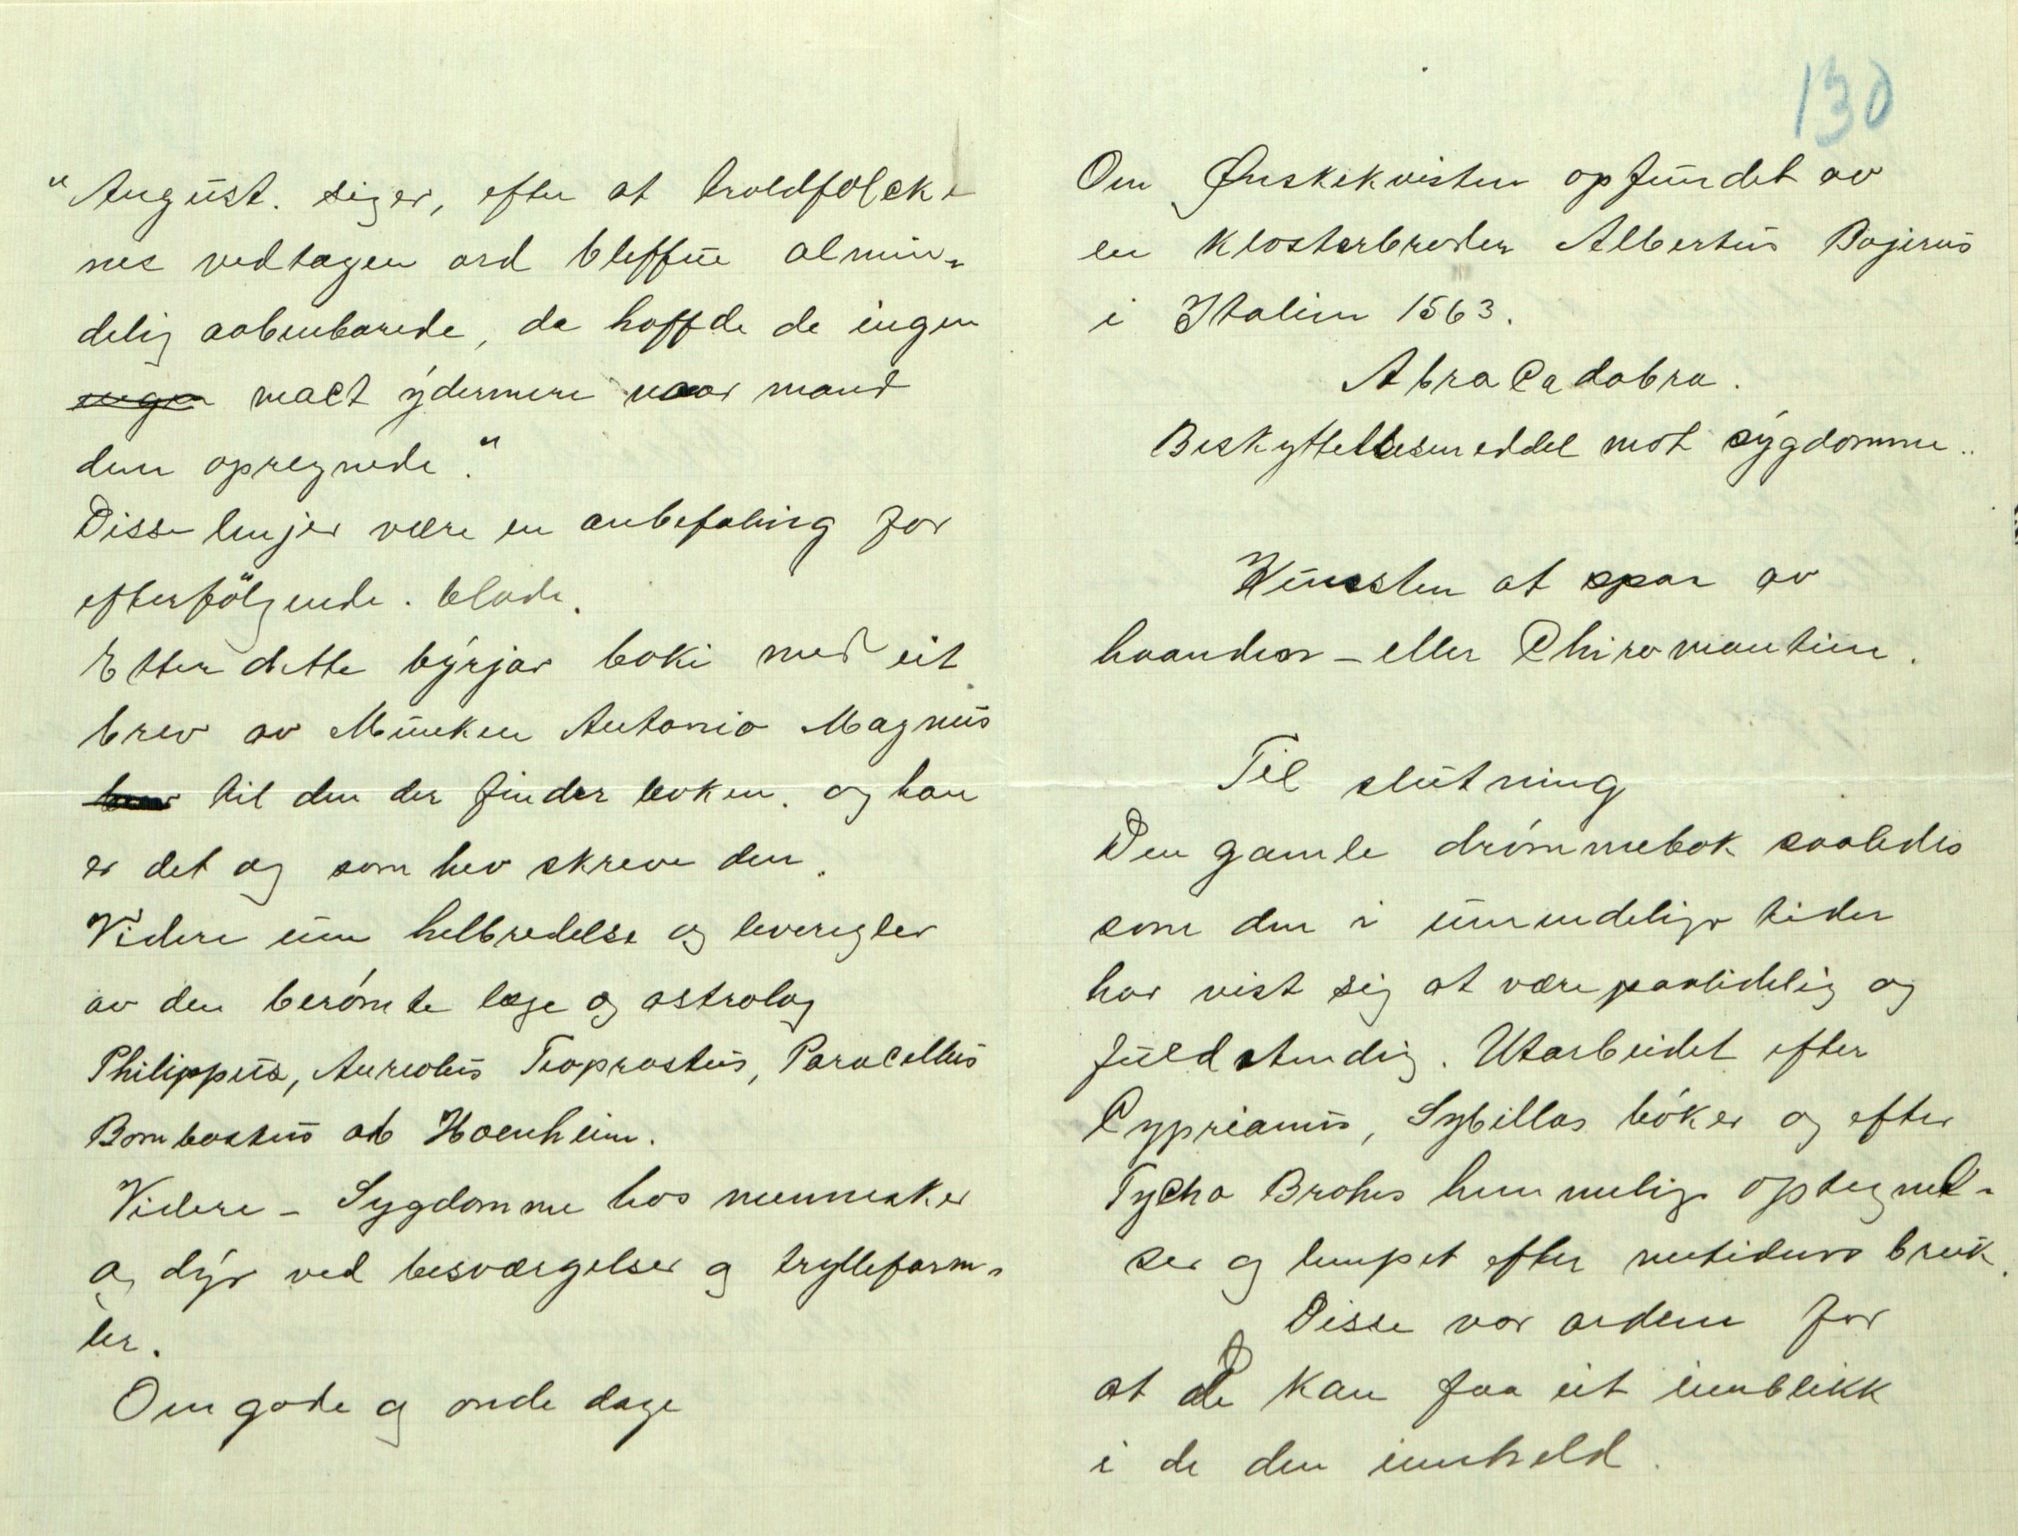 "August. siger, efter at troldfolcke
nes vedtagen ord bleffue almin-
delig aabenbarede, da haffde de ingen
ingen mact ydermere naar mand
dem opregnede."
Disse linjer være en anbefaling for
efterfölgende. blade.
Etter dette byrjar boki med eit
brev av Munken Antonio Magnus
til den der finder boken. og han
er det og som hev skreve den.
Videre um helbredelse og leveregler
av den berómte læge og astrolog
Philippus, Aureolus Teoprastus, Paracellus
Bombastus ab Hoenheim.
Videre - Sygdomme hos mennesker
og dýr ved besværgelser og trylleform-
ler.
Om gode og onde dage
130
Om Ønskekvisten opfundet av
en Klosterbroder Albertus Bajerus
i Italien 1563.
AbraCadabra.
Beskyttellsesmeddel mot sýgdomme..
Kunssten at spaa av
haanden - eller Chiromantien.
Til slutning
Den gamle drómmebok saaledes
som den i umindelige tider
har vist sig at være paalidelig og
fuldstendig. Utarbeidet efter
Cyprianus, Sybillas bóker og efter
Tycho Brahes hemmelige optegnel-
ser og lempet efter nutidens bruk.
Disse var ordene for
at De kan faa eit innblikk
i de den innheld.